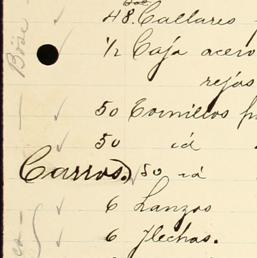 48. Callares
1/2 Caja acero
rejas
50 Tornillos p
50 id
Carros.) 50 id
6 Lanzas
6 Flechas.